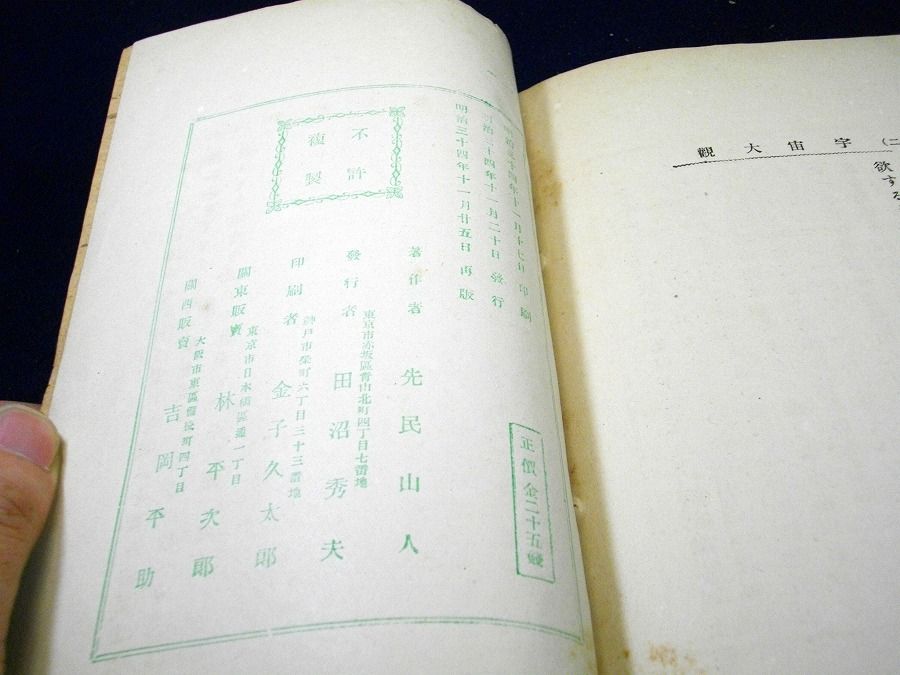 觀大宙宇(二
欲する
明治三十四年十一月十七日印刷
明治三十四年十一月二十日發行
明治三十四年十一月廿五日再版
正價金二十五錢
著作者 先民山人
東京市赤坂區靑山北町四丁目七番地
發行者 田沼秀夫
神戸市榮町六丁目三十三番地
印刷者 金子久太郎
東京市日本橋區通一丁目
關東販賣 林平次郎
大阪市東區備後町四丁目
關西販賣 吉岡平助
不許
複製